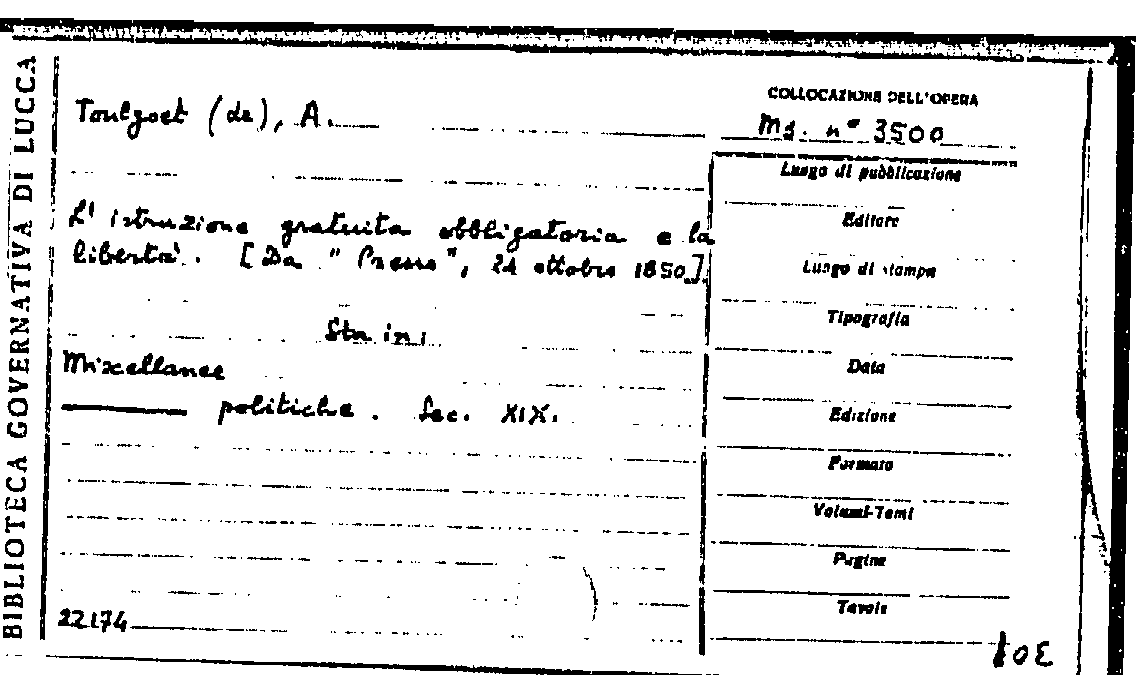 BIBLIOTECA GOVERNATIVA DI LUCCA
Toulgoet (de), A.
L'istruzione gratuita obbligatoria e la
libertà. [Da "Presse", 21 ottobre 1850].
Sta in:
Miscellanee
politiche. Sec. XIX.
22174
COLLOCAZIONE DELL'OPERA
Ms. n° 3500
Luogo di pubblicazione
Editore
Luogo di stampa
Tipografia
Data
Edizione
Formato
Volumi-Tomi
Pagine
Tavole